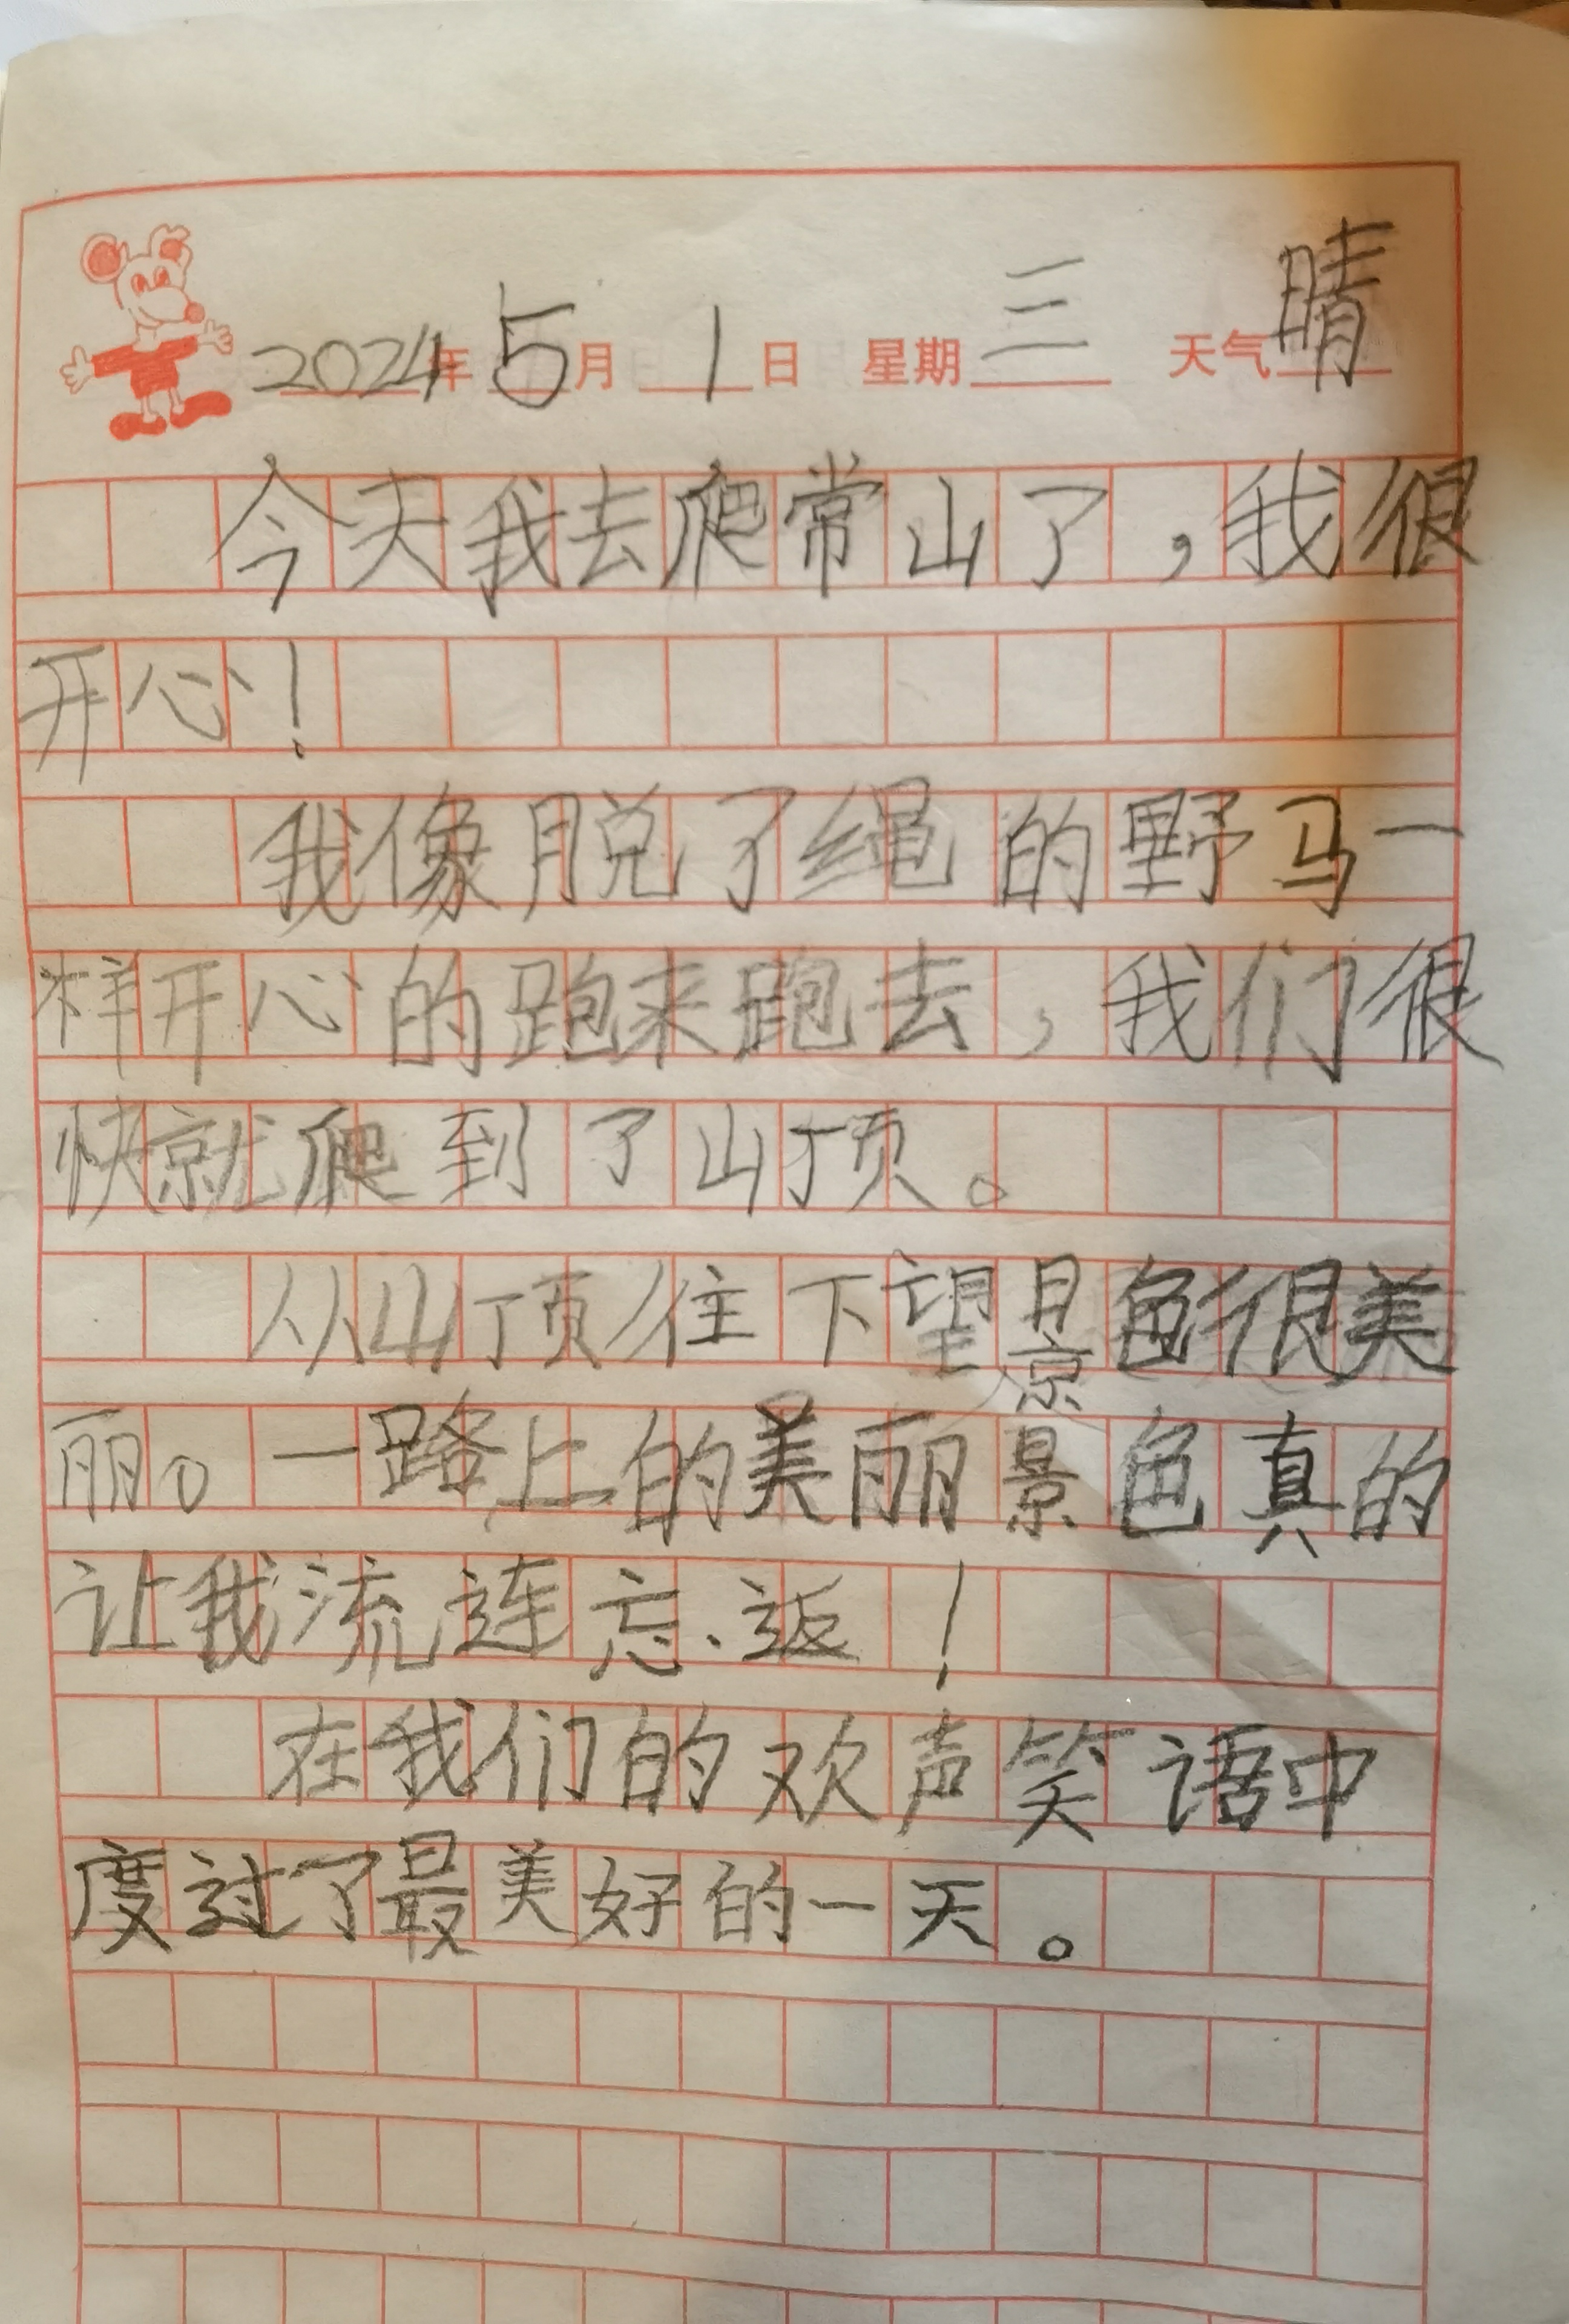 2024年5月1日 星期三 天气晴
今天我去爬常山了，我很
开心！
我像脱了绳的野马一
样开心的跑来跑去，我们很
快就爬到了山顶。
从山顶往下望景色很美
丽。一路上的美丽景色真的
让我流连忘返！
在我们的欢声笑语中
度过了最美好的一天。